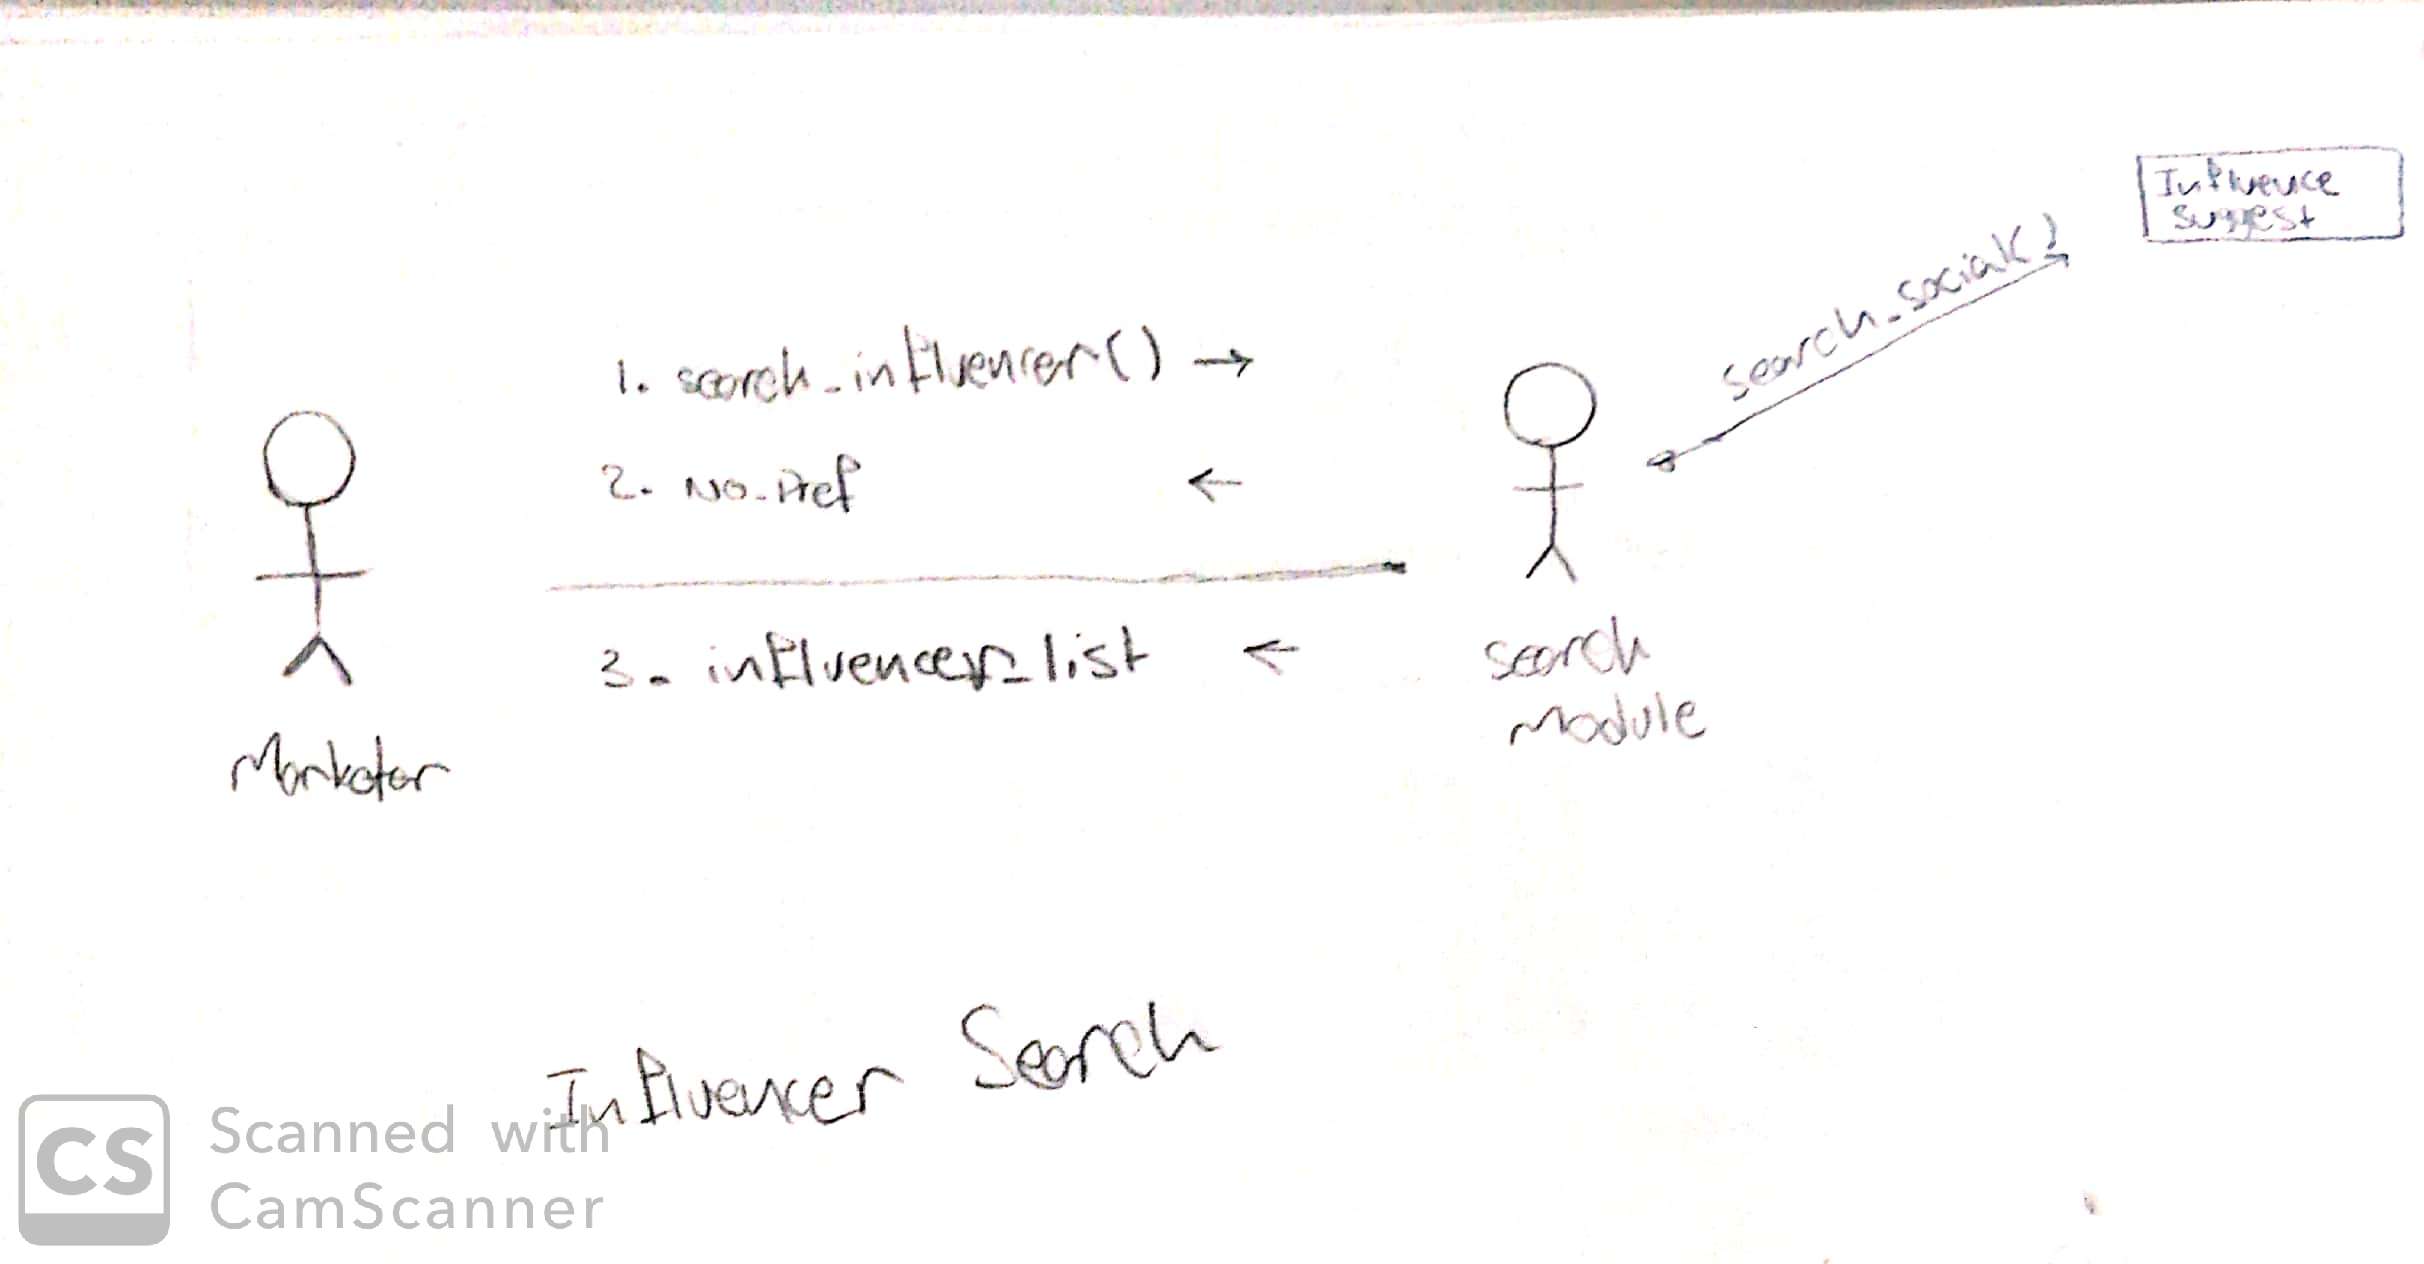 Influence
Suggest
search_social()
1. search_influencer() →
2. No_Pref ←
3. influencer_list ←
Search
Module
Marketer
Influencer Search
CS Scanned with
CamScanner